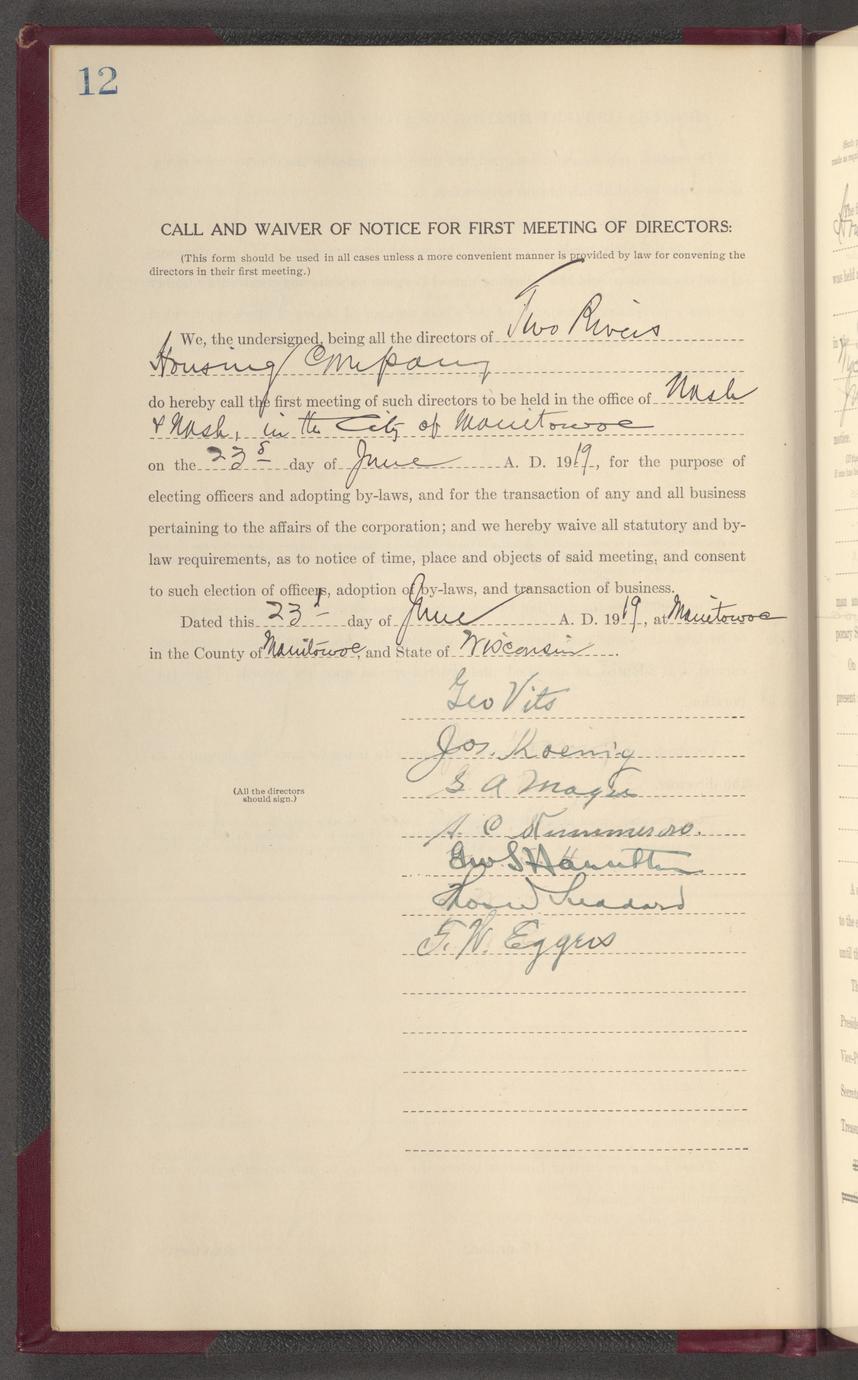 12
CALL AND WAIVER OF NOTICE FOR FIRST MEETING OF DIRECTORS:
(This form should be used in all cases unless a more convenient manner is provided by law for convening the
directors in their first meeting.)
We, the undersigned, being all the directors of Two Rivers
Housing Company
do hereby call the first meeting of such directors to be held in the office of Nash
& Nash, in the City of Manitowoc
on the 23d day of June A. D. 1919, for the purpose of
electing officers and adopting by-laws, and for the transaction of any and all business
pertaining to the affairs of the corporation; and we hereby waive all statutory and by-
law requirements, as to notice of time, place and objects of said meeting, and consent
to such election of officers, adoption of by-laws, and transaction of business.
Dated this 23d day of June A. D. 1919, at Manitowoc
in the County of Manitowoc, and State of Wisconsin.
Geo Vits
Jos. Koenig
(All the directors
should sign.)
Geo S Hamilton
F. W. Eggers